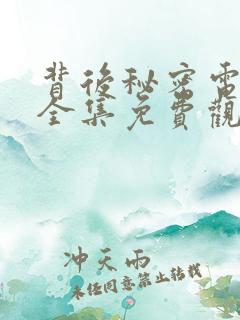 背後秘密電
全集免費觀
冲天雨
未经同意禁止转载